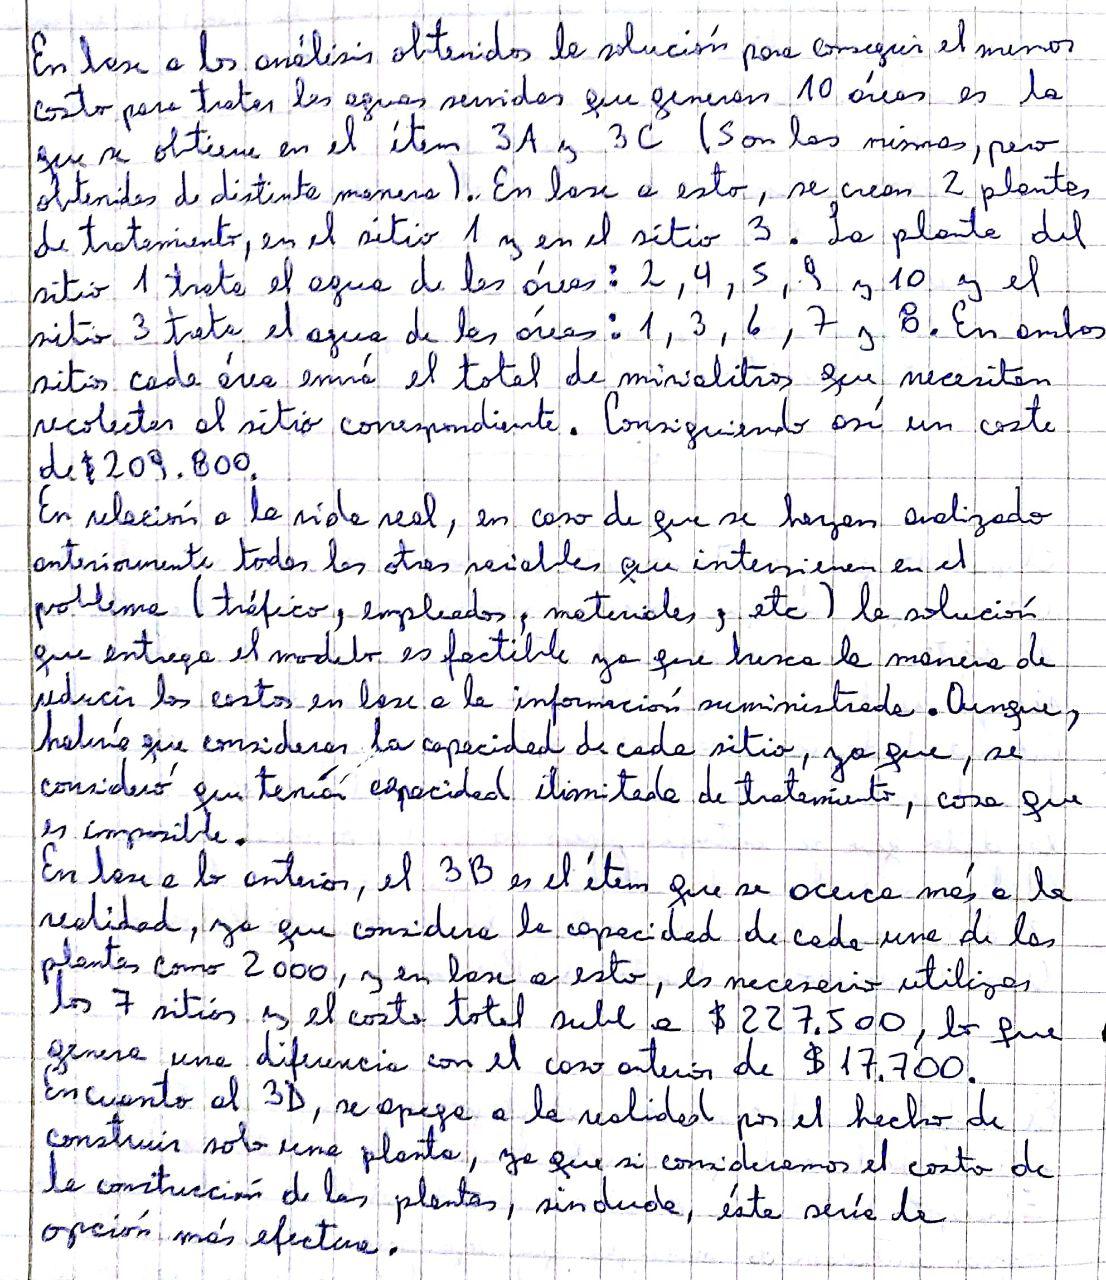 En base a los análisis obtenidos la solución para conseguir el menor
costo para tratar las aguas servidas que generan 10 áreas es la
que se obtiene en el ítem 3A y 3C (Son las mismas, pero
obtenidas de distinta manera). En base a esto, se crean 2 plantas
de tratamiento, en el sitio 1 y en el sitio 3. La planta del
sitio 1 trata el agua de las áreas: 2, 4, 5, 9 y 10 y el
sitio 3 trata el agua de las áreas: 1, 3, 6, 7 y 8. En ambos
sitios cada área envía el total de minialitros que necesitan
recolectar al sitio correspondiente. Consiguiendo así un coste
de $209.800.
En relación a la vida real, en caso de que se hayan analizado
anteriormente todas las otras variables que intervienen en el
problema (tráfico, empleados, materiales, etc) la solución
que entrega el modelo es factible ya que busca la manera de
reducir los costos en base a la información suministrada. Aunque,
habría que considerar la capacidad de cada sitio, ya que, se
consideró que tenían capacidad ilimitada de tratamiento, cosa que
es imposible.
En base a lo anterior, el 3B es el ítem que se acerca más a la
realidad, ya que considera la capacidad de cada una de las
plantas como 2000, y en base a esto, es necesario utilizar
los 7 sitios y el costo total sube a $227.500, lo que
genera una diferencia con el caso anterior de $17.700.
En cuanto al 3D, se apega a la realidad por el hecho de
construir solo una planta, ya que si consideramos el costo de
la construcción de las plantas, sin duda, ésta sería la
opción más efectiva.